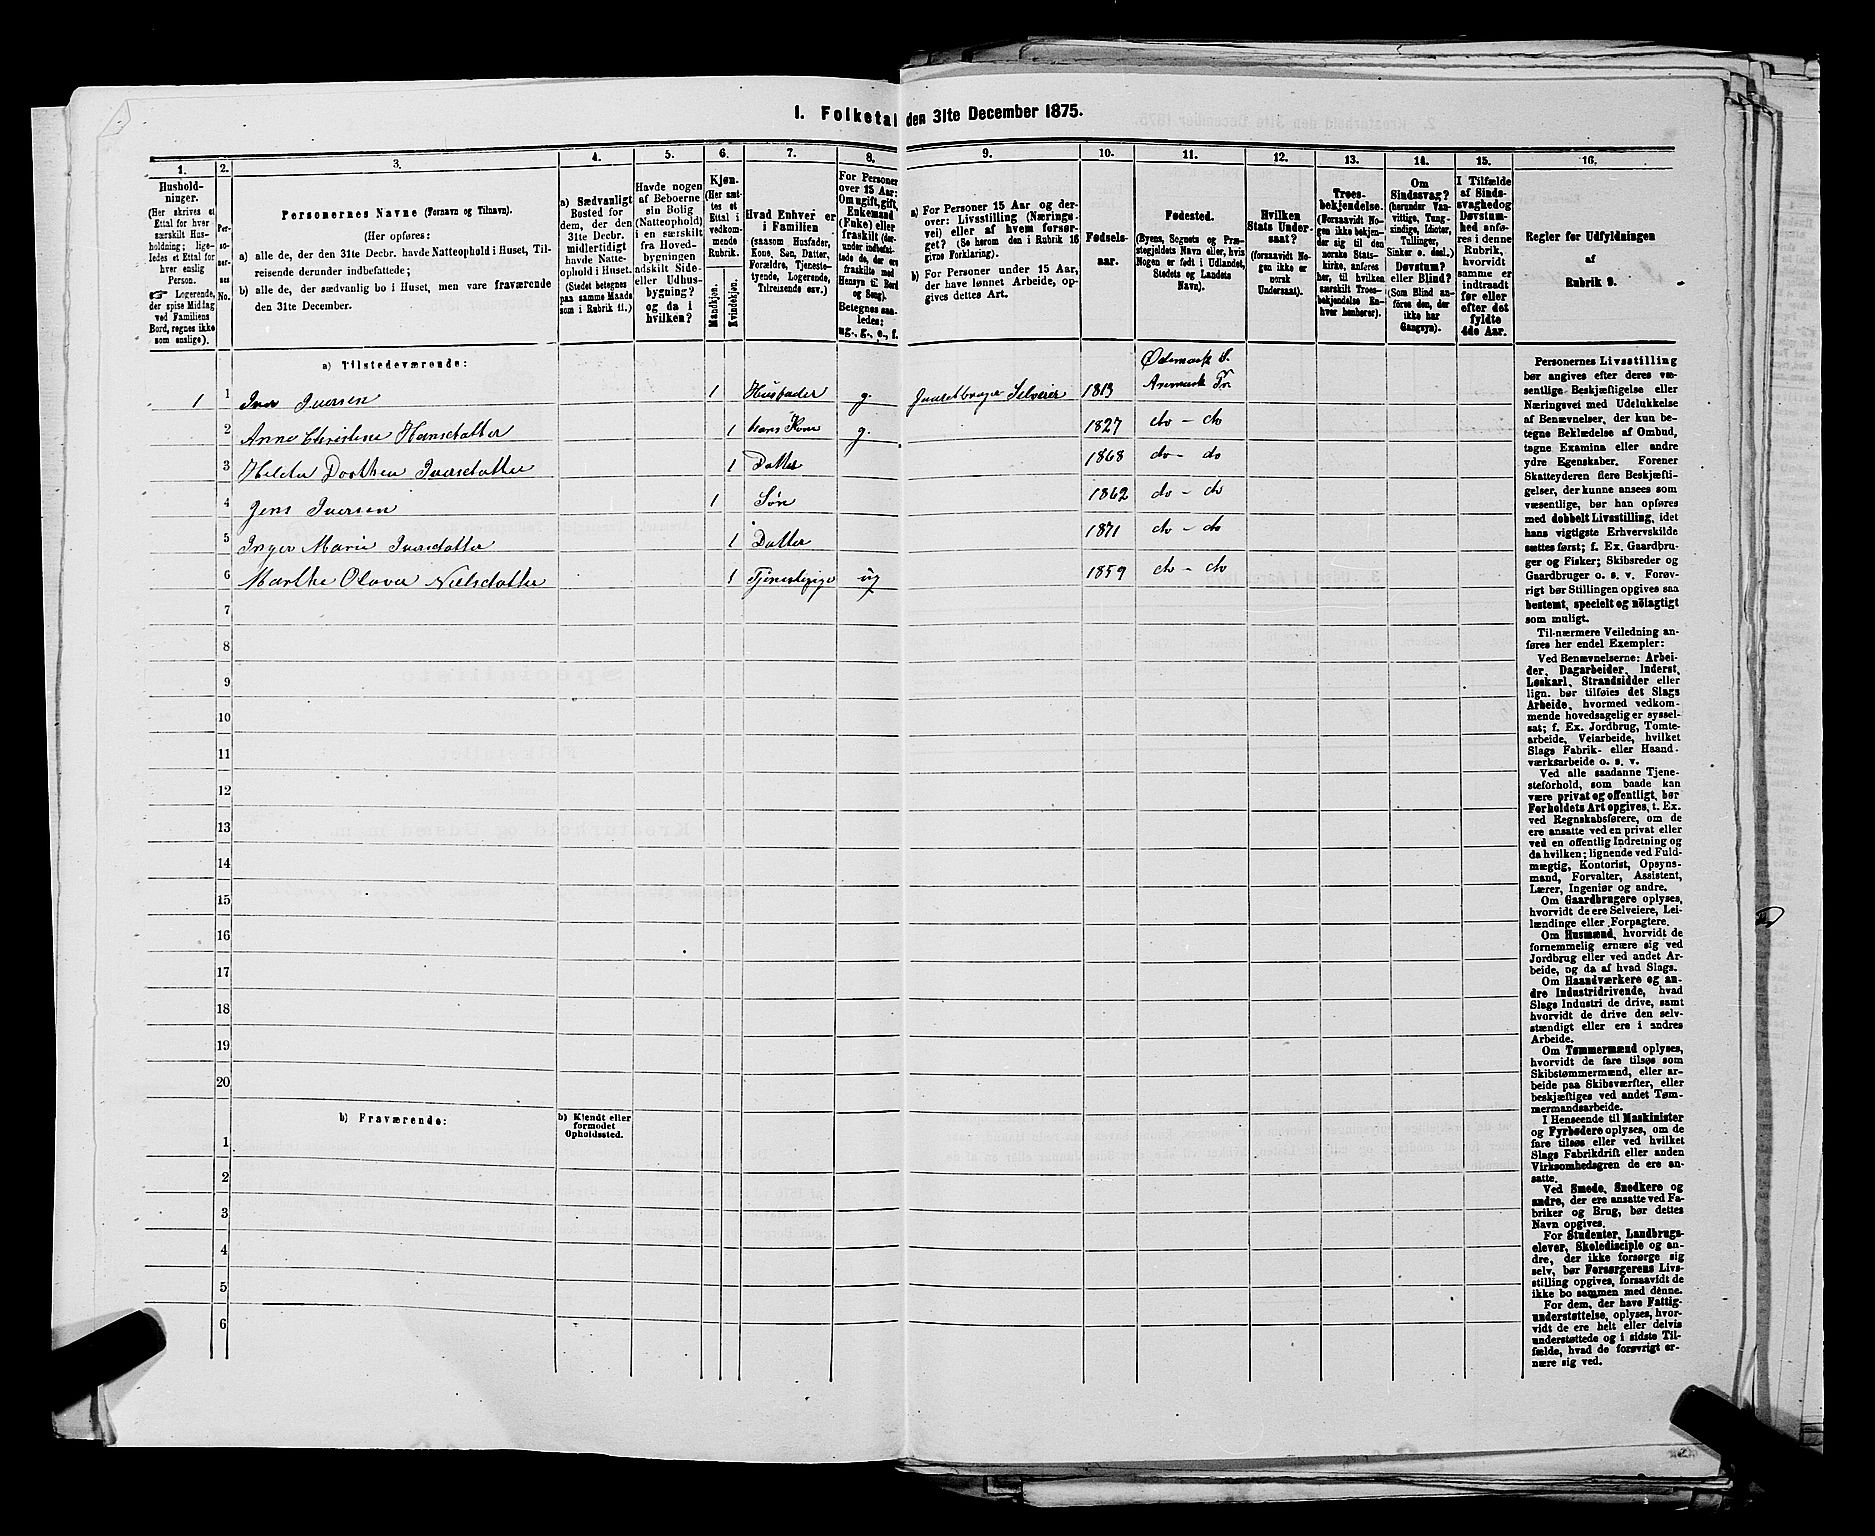 1. Folketal den 31te December 1875.
1. 2. 3. 4. 5. 6. 7. 8. 9. 10. 11. 12. 13. 14. 15. 16.
Hushold-
ninger.
(Her skrives et
Ettal for hver
særskilt Hus-
holdning; lige-
ledes et Ettal for
hver enslig
Person.
☞ Logerende,
der spise Middag
ved Familiens
Bord, regnes ikke
som enslige).
Per-
so-
ner-
nes
No.
Personernes Navne (Fornavn og Tilnavn).
(Her opføres:
a) alle de, der den 31te Decbr. havde Natteophold i Huset, Til-
reisende derunder indbefattede;
b) alle de, der sædvanlig bo i Huset, men vare fraværende
den 31te December.
a) Sædvanligt
Bosted for
dem, der den
31te Decbr.
midlertidigt
havde Natte-
ophold i Huset.
(Stedet betegnes
paa samme Maade
som i Rubrik 11.)
Havde nogen
af Beboerne
sin Bolig
(Natteophold)
i en særskilt
fra Hoved-
bygningen
adskilt Side-
eller Udhus-
bygning?
og da i
hvilken?
Kjøn.
(Her sæt-
tes et
Ettal i
vedkom-
mende
Rubrik.
Mandkjøn.
Kvindekjøn.
Hvad Enhver er
i Familien
(saasom Husfader,
Kone, Søn, Datter,
Forældre, Tjeneste-
tyende, Logerende,
Tilreisende osv.)
For Personer
over 15 Aar:
Om ugift, gift,
Enkemand
(Enke) eller
fraskilt (der-
under indbefat-
tede de, der ere
fraskilte med
Hensyn til Bord
og Seng).
Betegnes saa-
ledes:
ug., g., e., f.
a) For Personer 15 Aar og der-
over: Livsstilling (Nærings-
vei) eller af hvem forsør-
get? (Se herom den i Rubrik 16
givne Forklaring).
b) For Personer under 15 Aar,
der have lønnet Arbeide, op-
gives dettes Art.
Fødsels-
aar.
Fødested.
(Byens, Sognets og Præ-
stegjeldets Navn eller, hvis
Nogen er født i Udlandet,
Stedets og Landets
Navn).
Hvilken
Stats Under-
saat?
(forsaavidt No-
gen ikke er
norsk
Undersaat).
Troes-
bekjendelse.
(Forsaavidt No-
gen ikke bekjen-
der sig til den
norske Stats-
kirke, anføres
her, til hvilken
særskilt Troes-
bekjendelse En-
hver henhører).
Om
Sindssvag?
(herunder Van-
vittige, Tung-
sindige, Idioter,
Tullinger,
Sinker o. desl.)
Døvstum?
eller Blind?
(Som Blind an-
føres den, der
ikke har
Gangsyn).
I Tilfælde
af Sinds-
svaghed og
Døvstum-
hed anfø-
res i denne
Rubrik,
hvorvidt
samme er
indtraadt
før eller
efter det
fyldte
4de Aar.
Regler for Udfyldningen
af
Rubrik 9.
a) Tilstedeværende:
Ødemark S.
1 1 Iver Iversen 1 Husfader g. Gaardbruger Selveier 1813 Aremark Pr.
2 Anne Christine Hansdatter 1 hans Kone g. 1827 do - do
3 Helda Dorthea Iversdatter 1 Datter 1868 do - do
4 Jens Iversen 1 Søn 1862 do - do
5 Inger Marie Iversdatter 1 Datter 1871 do - do
6 Marthe Olava Nielsdatter 1 Tjenestepige ug 1859 do - do
7
8
9
10
11
12
13
14
15
16
17
18
19
20
b) Fraværende:
b) Kjendt eller
formodet
Opholdssted.
1
2
3
4
5
6
Personernes Livsstilling
bør angives efter deres væ-
sentlige Beskjæftigelse eller
Næringsvei med Udelukkelse
af Benævnelser, der kun be-
tegne Beklædelse af Ombud,
tagne Examina eller andre
ydre Egenskaber. Forener
Skatteyderen flere Beskjæfti-
gelser, der kunne ansees som
væsentlige, bør han opføres
med dobbelt Livsstilling, idet
hans vigtigste Erhvervskilde
sættes først; f. Ex. Gaardbru-
ger og Fisker; Skibsreder og
Gaardbruger o. s. v. Forøv-
rigt bør Stillingen opgives saa
bestemt, specielt og nöiagtigt
som muligt.
Til nærmere Veiledning an-
føres her endel Exempler:
Ved Benævnelserne: Arbei-
der, Dagarbeider, Inderst,
Løskarl, Strandsidder eller
lign. bør tilføies det Slags
Arbeide, hvormed vedkom-
mende hovedsagelig er syssel-
sat; f. Ex. Jordbrug, Tomte-
arbeide, Veiarbeide, hvilket
Slags Fabrik- eller Haand-
værksarbeide o. s. v.
Ved alle saadanne Tjene-
steforhold, som baade kan
være privat og offentligt, bør
Forholdets Art opgives, t. Ex.
ved Regnskabsførere, om de
ere ansatte ved en privat eller
ved en offentlig Indretning og
da hvilken; lignende ved Fuld-
mægtig, Kontorist, Opsyns-
mand, Forvalter, Assistent,
Lærer, Ingeniør og andre.
Om Gaardbrugere oplyses,
hvorvidt de ere Selveiere, Lei-
lændinge eller Forpagtere.
Om Husmænd, hvorvidt de
fornemmelig ernære sig ved
Jordbrug eller ved andet Ar-
beide, og da af hvad Slags.
Om Haandværkere og an-
dre Industridrivende, hvad
Slags Industri de drive, samt
hvorvidt de drive den selv-
stændigt eller ere i andres
Arbeide.
Om Tømmermænd oplyses,
hvorvidt de fare tilsøs som
Skibstømmermænd, eller ar-
beide paa Skibsværfter, eller
beskjæftiges ved andet Tøm-
mermandsarbeide.
I Henseende til Maskinister
og Fyrbødere oplyses, om de
fare tilsøs eller ved hvilket
Slags Fabrikdrift eller anden
Virksomhedsgren de ere an-
satte.
Ved Smede, Snedkere og
andre, der ere ansatte ved Fa-
briker og Brug, bør dettes
Navn opgives.
For Studenter, Landbrugs-
elever, Skoledisciple og an-
dre, der ikke forsørge sig
selv, bør Forsørgerens Livs-
stilling opgives, forsaavidt de
ikke bo sammen med denne.
For dem, der have Fattig-
understøttelse, oplyses, hvor-
vidt de ere helt eller delvis
understøttede og i sidste Til-
fælde, hvad de forøvrigt er-
nære sig ved.